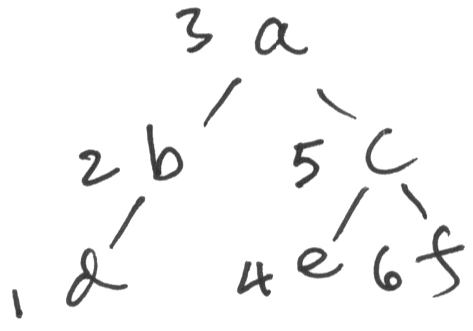 3 a
2 b 5 c
1 d 4 e 6 f